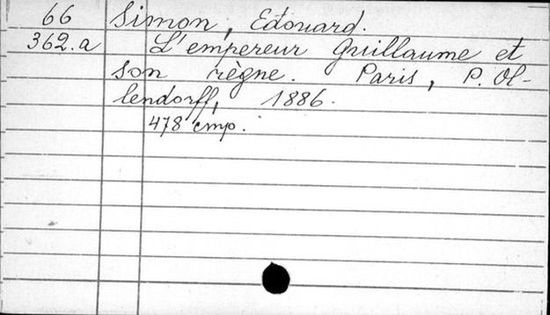 66 Simon, Edouard.
362.a L'empereur Guillaume et
son règne. Paris, P. Ol-
lendorff, 1886.
478 cmp.